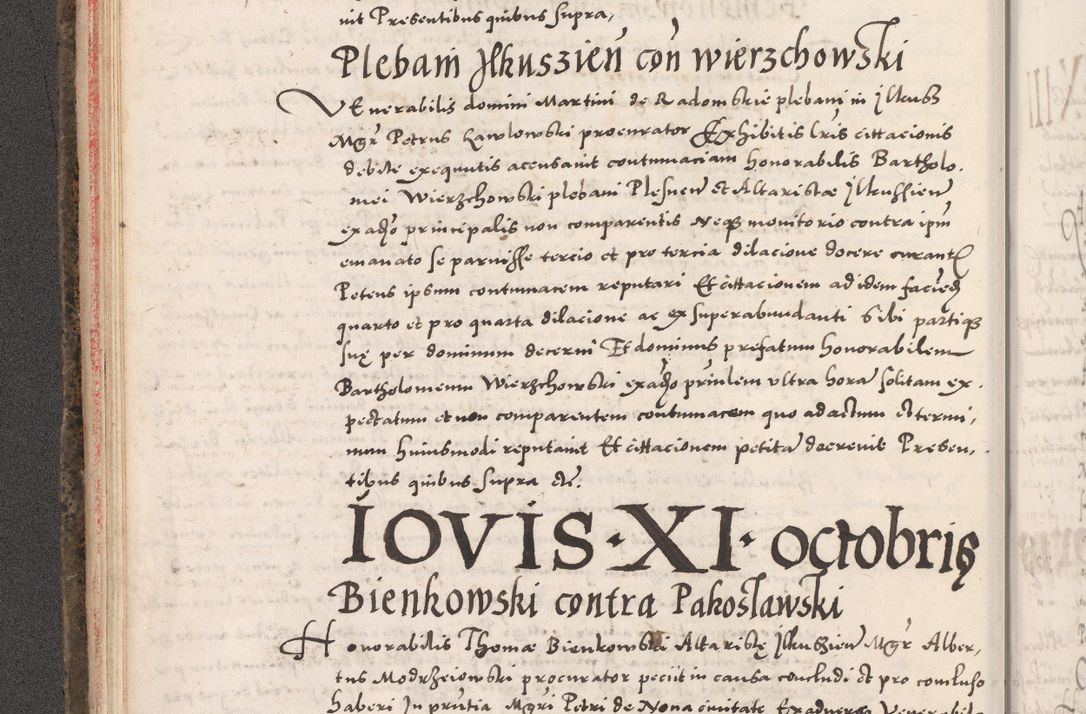 nit Presentibus quibus supra,
Plebani Jlkuszień coń wierzchowski
VEnerabilis domini Martini de Radomskie plebani in Jlkusz
Mgr Petrus Kawlowski procurator Exhibitis lris cittacionis
debite exequutis acusavit contumaciam honorabilis Bartholo,
mei Wierzchowski plebani Plesnen et Altaristæ Jlkussien
ex adso principalis non comparentis Neqz monitorio contra ipm
emanato se parvisse tercio et pro tercia dilacione docere curant
Petens ipsum contumacem reputari Et cittacionem ad idem faciend
quarto et pro quarta dilacione ac ex superabundanti Sibi partiqz
suę per dominum decerni Et dominus prefatum honorabilem
Bartholomeum Wierzchowski ex adso prinlem ultra hora solitam ex,
pectatum et non comparentem contumacem quo ad actum et termi,
num huiusmodi reputavit Et cittacionem petita decrevit Presen,
tibus quibus supra etc.
IOVIS · XI · octobris
Bienkowski contra Pakoslawski
Honorabilis Thomæ Bienkowski Altaristę Jlkuszien Mgr Alber,
tus Modrzeiowski procurator peciit in causa concludi et pro concluso
haberi In pntia Mgri Petri de Nona civitate Ex adverso Venerabilis